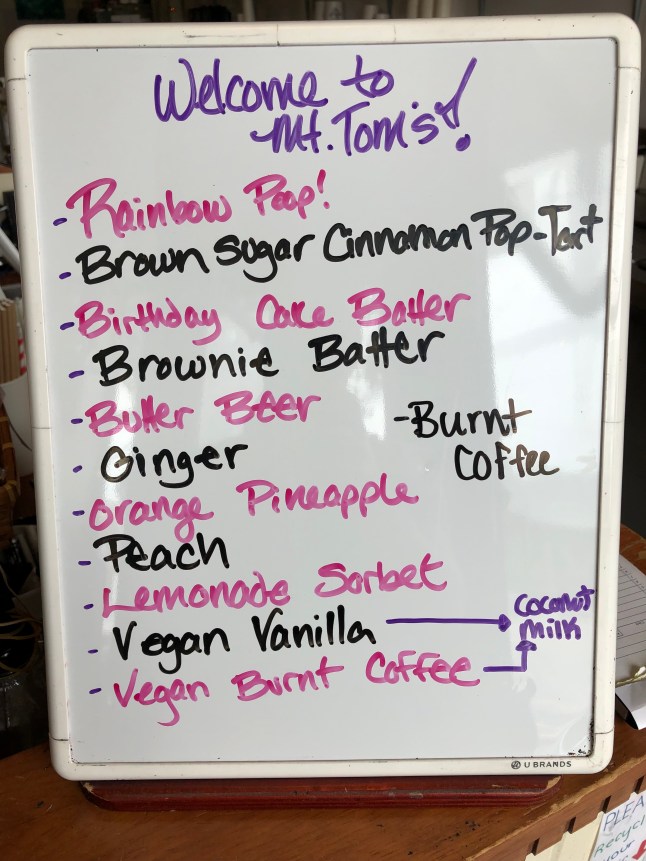 Welcome to
Mt. Tom's!
- Rainbow Poop!
- Brown Sugar Cinnamon Pop-Tart
- Birthday Cake Batter
- Brownie Batter
- Butter Beer
- Burnt
Coffee
- Ginger
- Orange Pineapple
- Peach
- Lemonade Sorbet
- Vegan Vanilla
Coconut
Milk
- Vegan Burnt Coffee
U BRANDS
PLEA
Recycl
your